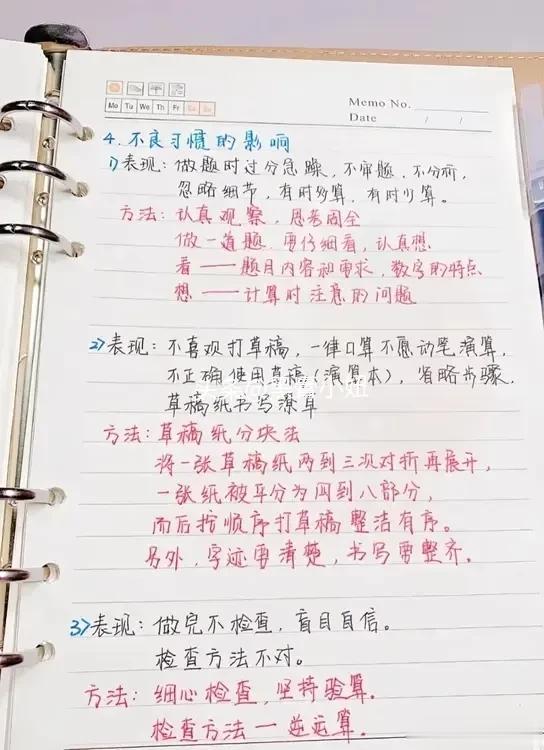 Mo Tu We Th Fr Sa Su
Memo No.
Date / /
4. 不良习惯的影响
1) 表现: 做题时过分急躁, 不审题, 不分析,
忽略细节, 有时多算, 有时少算。
方法: 认真观察, 思考周全
做一道题 要仔细看, 认真想
看——题目内容和要求, 数字的特点
想——计算时注意的问题
2) 表现: 不喜欢打草稿, 一律口算不愿动笔演算,
不正确使用草稿(演算本), 省略步骤,
草稿纸书写潦草
方法: 草稿纸分块法
将一张草稿纸两到三次对折再展开,
一张纸被平分为四到八部分,
而后按顺序打草稿整洁有序。
另外, 字迹要清楚, 书写要整齐。
3) 表现: 做完不检查, 盲目自信。
检查方法不对。
方法: 细心检查, 坚持验算.
检查方法一逆运算.